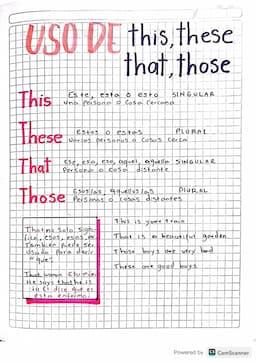 USO DE this, these
that, those
This Este, esta o esto SINGULAR
Una persona o cosa cercana
These Estos o estas PLURAL
Varias personas o cosas cerca
That Ese, esa, eso, aquel, aquella SINGULAR
Persona o cosa distante
Those PLURAL
Personas o cosas distantes
That no solo signi-
fica, esos, esas, eso
Tambien puede ser
usado para decir
"que"
That woman
He says that he is
El dice que el
esta enfermo.
This is your train
That is a beautiful garden
Those boys are very bad
These are good boys
Powered by CS CamScanner